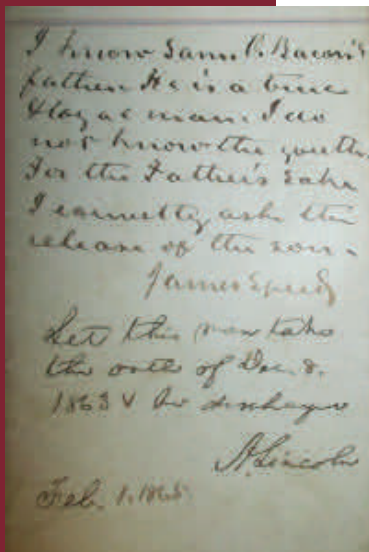 I know Saml. P. Bacon's
father. He is a true
& loyal man. I do
not know the youth.
For the Father's sake
I earnestly ask the
release of the son.
James Speed
Let this man take
the oath of Dec. 8.
1863 & be discharged
A. Lincoln
Feb. 1. 1865